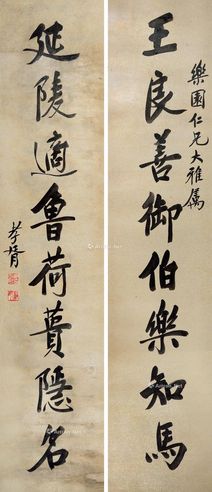 樂園仁兄大雅屬
王良善御伯樂知馬
延陵適魯荷蕢隱名
孝胥